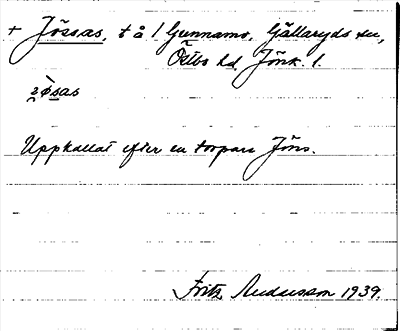 + Jössas, t å 1 Gunnamo, Gällaryds sn,
Östbo hd, Jönk. l.
Uppkallat efter en torpare Jöns.
Fritz Andersson 1939.